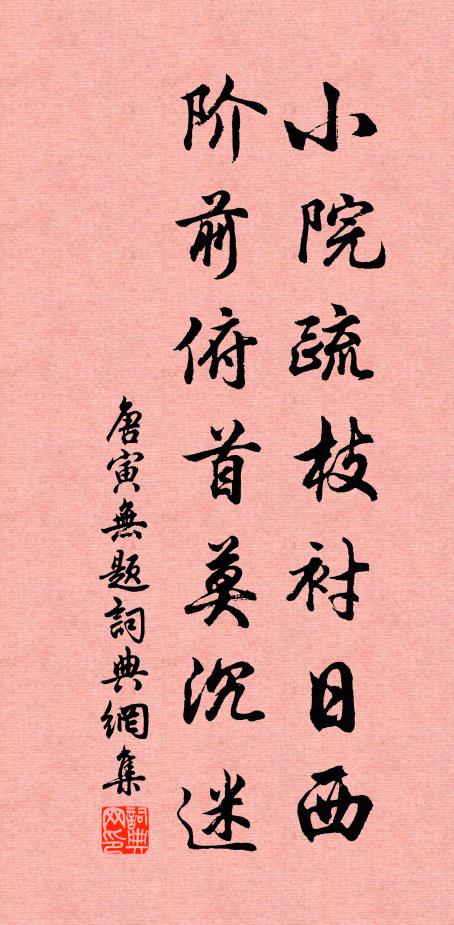 小院疏枝衬日西
阶前俯首莫沉迷
唐寅無题詞典網集
詞典网印